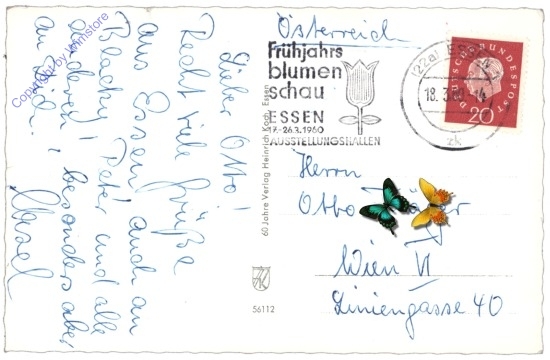 Lieber Otto!
Recht viele Grüße
aus Essen! auch an
Blacky! Peter und alle
anderen! besonders aber
an Dich!
Copyright by winnstore
60 Jahre Verlag Heinrich Koch, Essen
56112
Österreich
Frühjahrs
blumen
schau
ESSEN
17.-26.3.1960
AUSSTELLUNGSHALLEN
(22a) ESSEN 1
18.3.60
14
zk
DEUTSCHE BUNDESPOST
20
Herrn
Otto
Wien VI
Liniengasse 40